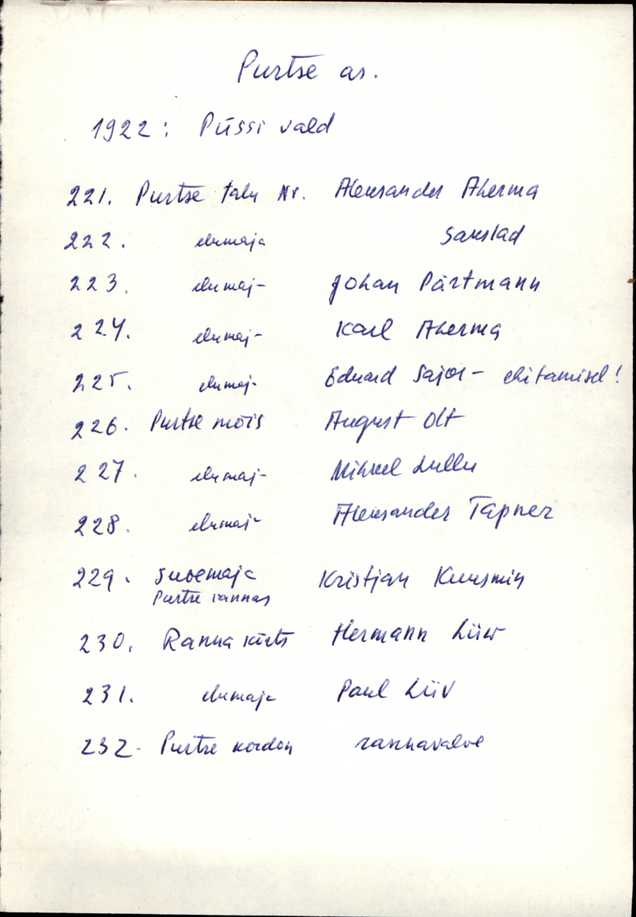 Purtse as.
1922: Püssi vald
221. Purtse talu Nr. Aleksander Aherma
222. elumaja
223. elumaj- Johan Pärtmann
224. elumaj- Karl Aherma
225. elumaj- Eduard ehitamisel!
226. Purtse mõis August Olt
227. elumaj- Mihkel Lullu
228. elumaj- Aleksander Tapner
229. suvemaja Kristjan Kuusmin
Purtse rannas
230. Ranna kõrts Hermann Liiw
231. elumaja Paul Liiv
232. Purtse kordon rannavalve